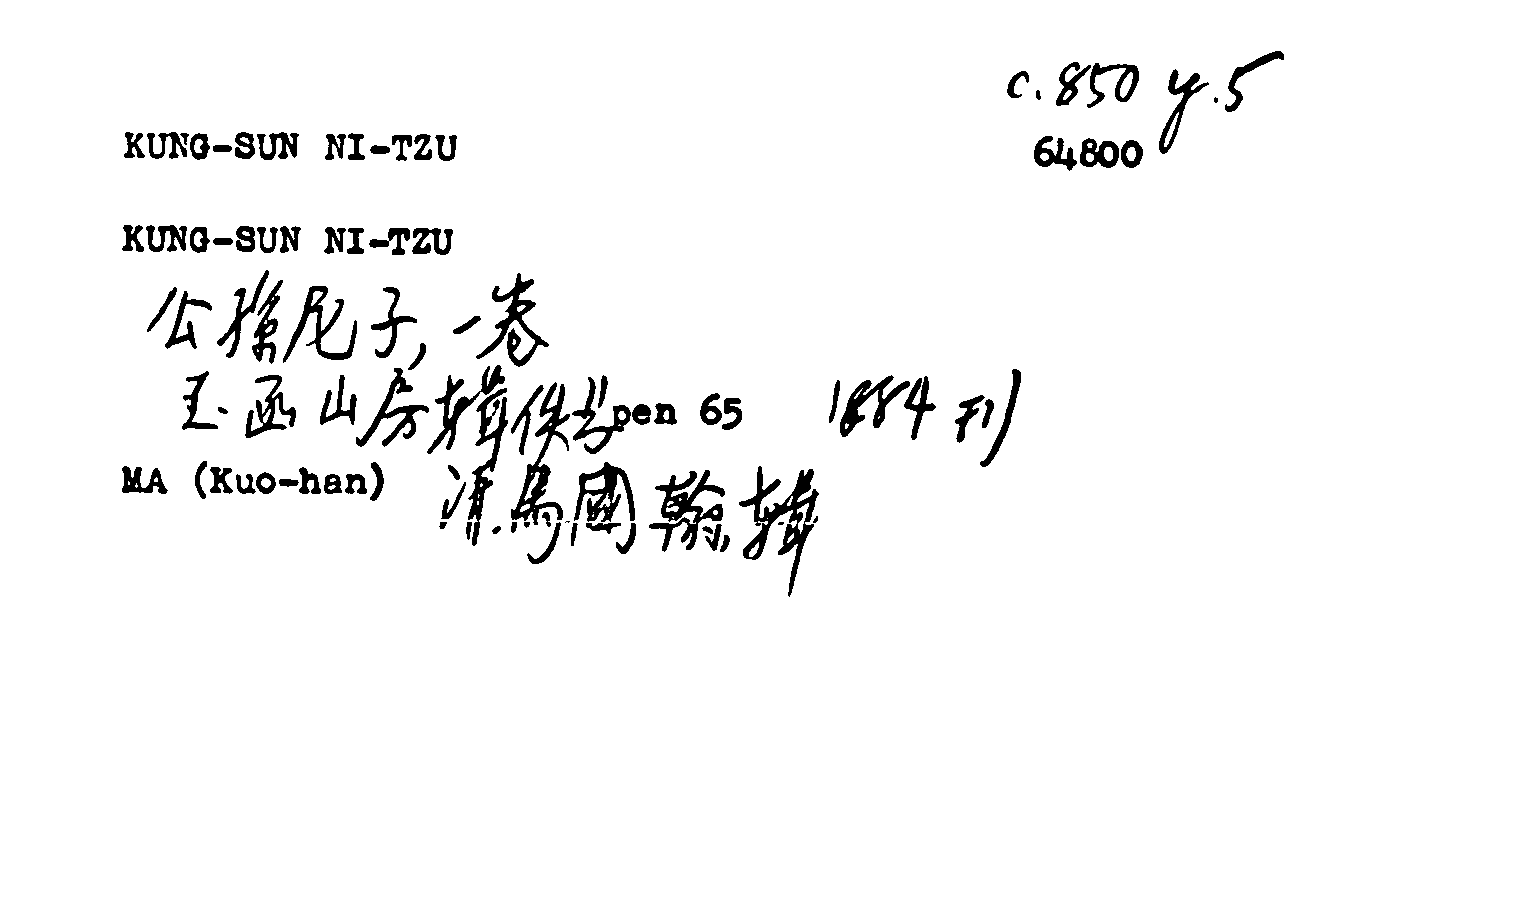 c.850 y.5
KUNG-SUN NI-TZU
64800
KUNG-SUN NI-TZU
公孫尼子, 一卷
玉函山房輯佚书 pen 65 1884刊
MA (Kuo-han) 清.馬國翰輯